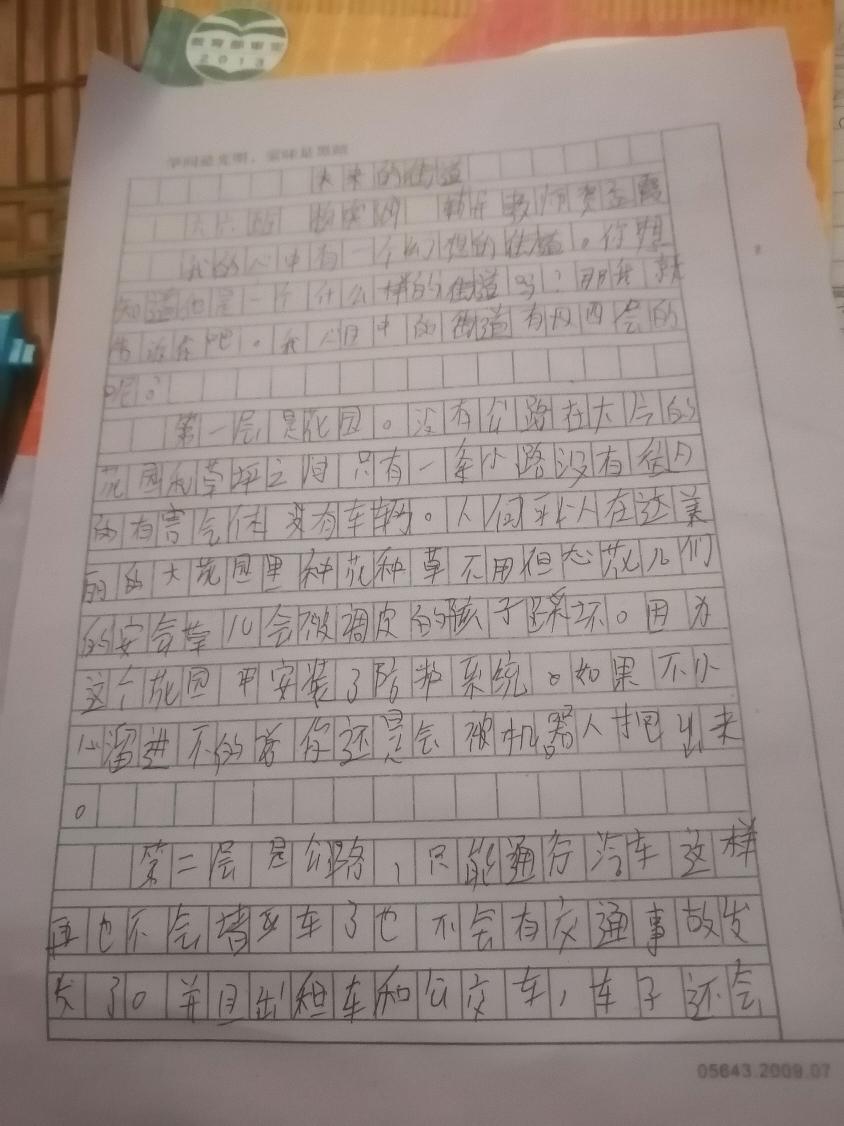 教育部审定
2013
学问是光明，蒙昧是黑暗
未来的街道
我的心中有一个幻想的街道。你想
知道他是一个什么样的街道吗？那我就
告诉你吧。我心目中的街道有四层的
呢。
第一层是花园。没有公路在大片的
花园和草坪之间只有一条小路没有
的有害气体没有车辆。人们可以在这美
丽的大花园里种花种草不用担心花儿们
的安全草儿会被调皮的孩子踩坏。因为
这个花园里安装了防 系统。如果不小
心溜进 你还是会被机器人 出来
。
第二层是公路，只能通行汽车这样
再也不会堵车了也不会有交通事故发
了。并且出租车和公交车，车子还会
05643.2009.07